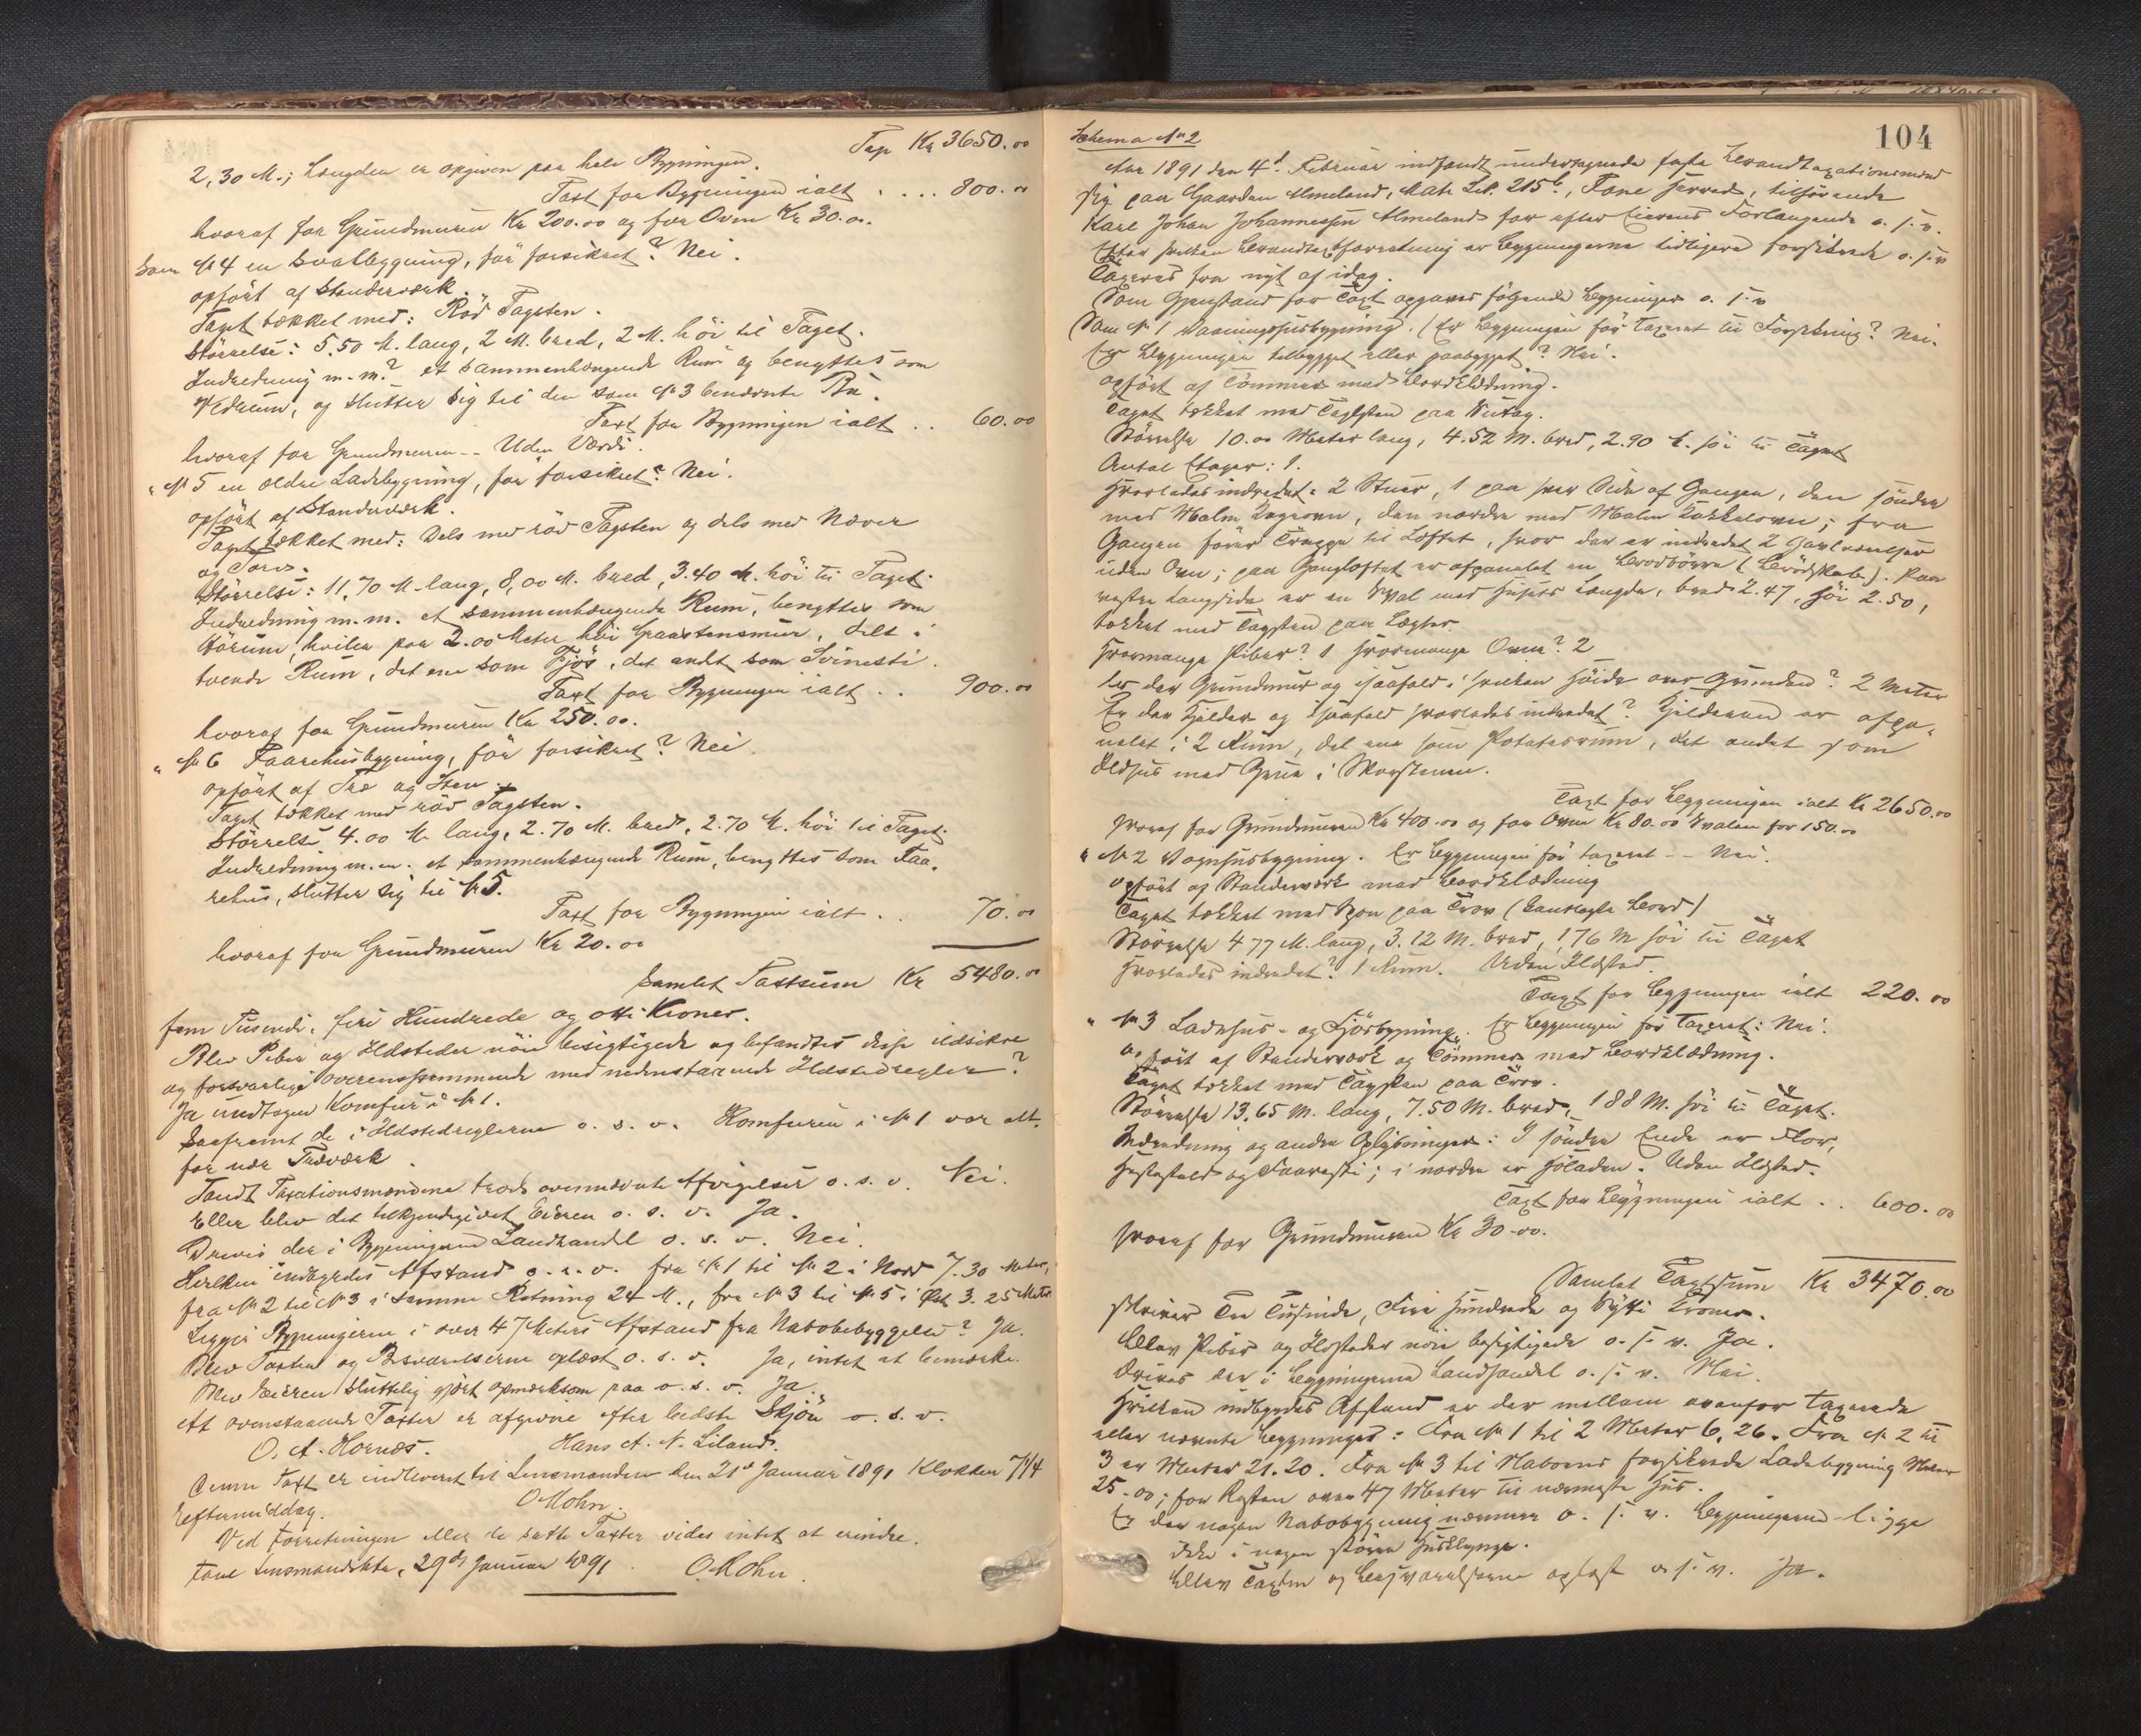 Tap Kr 3650.00
2,30 M.; Længden er opgiven paa hele Bygningen.
Taxt for Bygningen ialt . . . . 800.00
hvoraf for Grundmuren Kr 200.00 og for Ovne Kr 30.00.
Som № 4 en Svalbygning, før forsikret? Nei.
opført af Standerværk.
Taget tækket med: Rød Tagsten.
Størrelse: 5.50 M. lang, 2 M. bred, 2 M. høi til Taget.
Indredning m.m.? et sammenhængende Rum og benyttes som
Vedrum, og slutter sig til den som № 3 benævnte Bu.
Taxt for Bygningen ialt . . 60.00
hvoraf for Grundmuren -- Uden Værdi.
" № 5 en ældre Ladebygning, før forsikret? Nei.
opført af Standerværk.
Taget tækket med: Dels med rød Tagsten og dels med Næver
og Torv.
Størrelse: 11,70 M. lang, 8,00 M. bred, 3.40 M. høi til Taget.
Indredning m.m. et sammenhængende Rum, benyttes som
Hørum, hviler paa 2.00 Meter høi Graastensmur, delt i
tvende Rum, det ene som Fjøs, det andt som Svinesti.
Taxt for Bygningen ialt . . 900.00
hvoraf for Grundmuren Kr 250.00.
" № 6 Faarehusbygning, før forsikret? Nei.
opført af Træ og Sten.
Taget tækket med rød Tagsten.
Størrelse 4.00 M. lang, 2.70 M. bred, 2.70 M. høi til Taget.
Indredning m.m. et sammenhængende Rum, benyttes som Faa-
rehus, slutter sig til № 5.
Taxt for Bygningen ialt . . 70.00
hvoraf for Grundmuren Kr 20.00
Samlet Taxtsum Kr 5480.00
fem Tusende, firi Hundrede og otti Kroner.
Blev Piber og Ildsteder nöie besigtigede og befandtes disse ildsikre
og forsvarlige overensstemmende med nedenstaaende Ildstedregler?
Ja undtagen Komfur i № 1.
Saafremt de i Ildstedreglerne o. s. v. Komfuren i № 1 var alt-
for nær Træværk.
Fandt Taxationsmændene trods ovennævnte Afvigelser o. s. v. Nei.
Eller blev det tilkjendegivet Eieren o. s. v. Ja.
Drives der i Bygningerne Landhandel o. s. v. Nei.
Hvilken indbyrdes Afstand o. s. v. fra № 1 til № 2 i Nord 7.30 Meter,
fra № 2 til № 3 i samme Retning 24 M., fra № 3 til № 5 i Øst 3.25 Meter
Ligger Bygningerne i over 47 Meters Afstand fra Nabobebyggelse? Ja.
Blev Taxten og Besvarelserne oplæst o. s. v. Ja, intet at bemærke.
Blev Eieren sluttelig gjort opmærksom paa o. s. v. Ja
At ovenstaaende Taxter er afgivne efter bedste Skjön o. s. v.
O. A. Hornæs. Hans A. N. Liland.
Denne Taxt er indleveret til Lensmanden den 21de Januar 1891 Klokken 7 1/4
Eftermiddag. O Mohn.
Ved Forretningen eller de satte Taxter vides intet at erindre.
Fane Lensmandskte, 29de Januar 1891 O. Mohn.
104
Schema № 2
Aar 1891 den 4d Februar indfandt undertegnede faste Brandtaxationsmænd
sig paa Gaarden Almeland, Matr. Lit. 215b, Fane Herred, tilhörende
Karl Johan Johannessen Almeland for efter Eierens Forlangende o. s. v.
Efter hvilken Brandtaxtforretning er Bygningerne tidligere forsikrede o. s. v
Taxeres fra nyt af idag.
Som Gjenstand for Taxt opgaves følgende Bygninger o. s. v
Som № 1 Vaaningshusbygning. (Er Bygningen før Taxeret til Forsikring? Nei.
Er Bygningen tilbygget eller paabygget? Nei.
opført af Tømmer med Bordklædning.
Taget tækket med Taglsten paa Sutag.
Størrelse 10.00 Meter lang, 4.52 M. bred, 2.90 M. høi til Taget
Antal Etager: 1.
Hvorledes indredet: 2 Stuer, 1 paa hver Side af Gangen, den søndre
med Malm Kogeovn, den nordre med Malm Kakkelovn; fra
Gangen fører Trappe til Loftet, hvor der er indredet 2 Gavlværelser
uden Ovn; paa Gangloftet er afpanelet en Brødbörre (Brødskab). Paa
vestre Langside er en Sval med Husets Længde, bred 2.47, høi 2.50,
tækket med Tagsten paa Lægter.
Hvormange Piber? 1 Hvormange Ovne? 2
Er der Grundmur og isaafald i hvilken Høide over Grunden? 2 Meter
Er der Kjelder og isaafald hvorledes indredet? Kjelderen er afpa-
nelet i 2 Rum, det ene som Potetesrum, det andet som
Ildhus med Grue i Skorstenen.
Taxt for Bygningen ialt Kr 2650.00
hvoraf for Grundmuren Kr 400.00 og for Ovne Kr 80.00 Svalen for 150.00
" № 2 Vognhusbygning. Er Bygningen før taxeret -- Nei.
opført af Standerværk med Bordklædning
Taget tækket med Spon paa Trov (Kantlagte Bord)
Størrelse 4 77 M. lang, 3.12 M. bred, 1 76 M høi til Taget
Hvorledes indredet? 1 Rum. Uden Ildsted.
Taxt for Bygningen ialt 220.00
" № 3 Ladehus- og Fjösbygning. Er Bygningen før Taxeret: Nei.
opført af Standerværk og Tømmer med Bordklædning.
Taget tækket med Tagsten paa Trov.
Størrelse 13.65 M. lang, 7.50 M. bred, 1 88 M. høi til Taget.
Indredning og andre Oplysninger: I søndre Ende er Flor,
Hestestald og Faaresti; i nordre er Høladen. Uden Ildsted.
Taxt for Bygningen ialt . . 600.00
hvoraf for Grundmuren Kr 30.00.
Samlet Taxtsum Kr 3470.00
skriver Tre Tusinde, Fire Hundrede og Sytti Kroner.
Blev Piber og Ildsteder nöie besigtigede o. s. v. Ja.
Drives der i Bygningerne Landhandel o. s. v. Nei.
Hvilken indbyrdes Afstand er der mellem ovenfor taxerede
eller nævnte Bygninger: Fra № 1 til 2 Meter 6,26. Fra № 2 til
3 er Meter 21.20. Fra № 3 til Naboens forsikrede Ladebygning Meter
25.00; for Resten over 47 Meter til nærmeste Hus.
Er der nogen Nabobygning nærmere o. s. v. Bygningerne ligge
ikke i nogen større Husklynge.
Blev Taxten og Besvarelserne oplæst o. s. v. Ja.